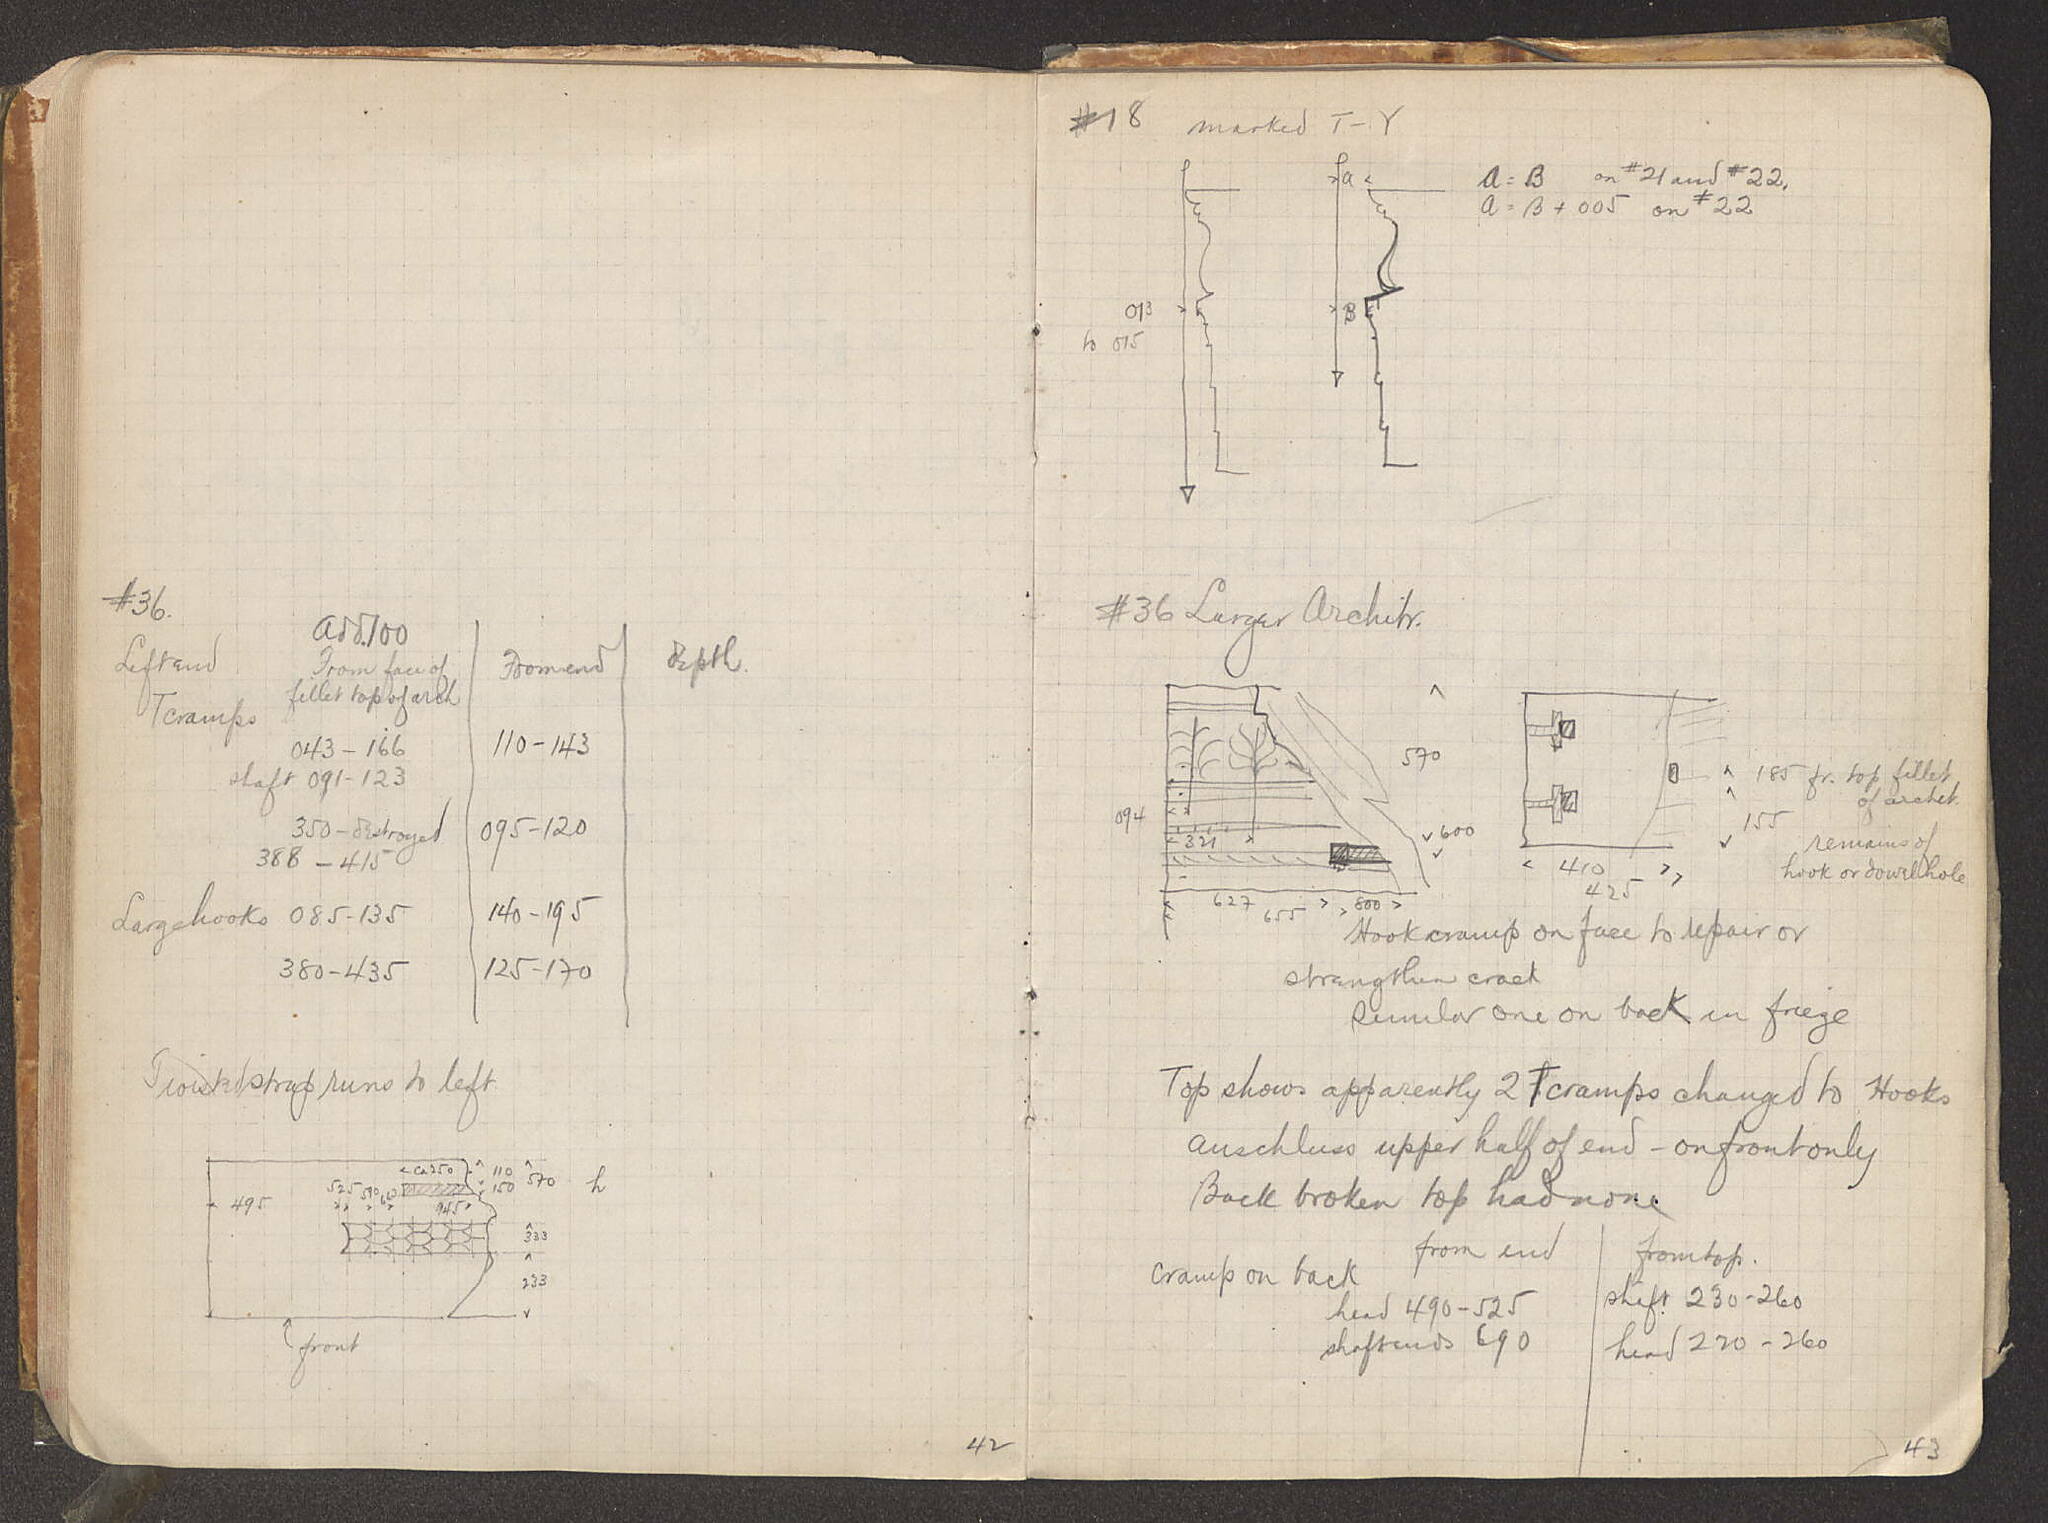 #36.
Add.100
Left end From face of From end depth.
fillet top of arch
T cramps
043-166 110-143
shaft 091-123
350-destroyed 095-120
388-415
Large hooks 085-135 140-195
380-435 125-170
Twisted strap runs to left
ca 250 110 570 h
150
495 525 590 945
333
233
front
42
#18 marked T-Y
a A = B on #21 and #22.
A = B + 005 on #22
013 B
to 015
#36 Larger Architr.
570
185 fr. top fillet
of archit.
094 155
321 600
remains of
hook or dowel hole
410
425
627 800
655
Hook cramp on face to repair or
strengthen crack
Similar one on back in frieze
Top shows apparently 2 T cramps changed to Hooks
Anschluss upper half of end - on front only
Back broken top had none
from end from top.
cramp on back
head 490-525 shaft 230-260
shaft ends 690 head 220-260
43